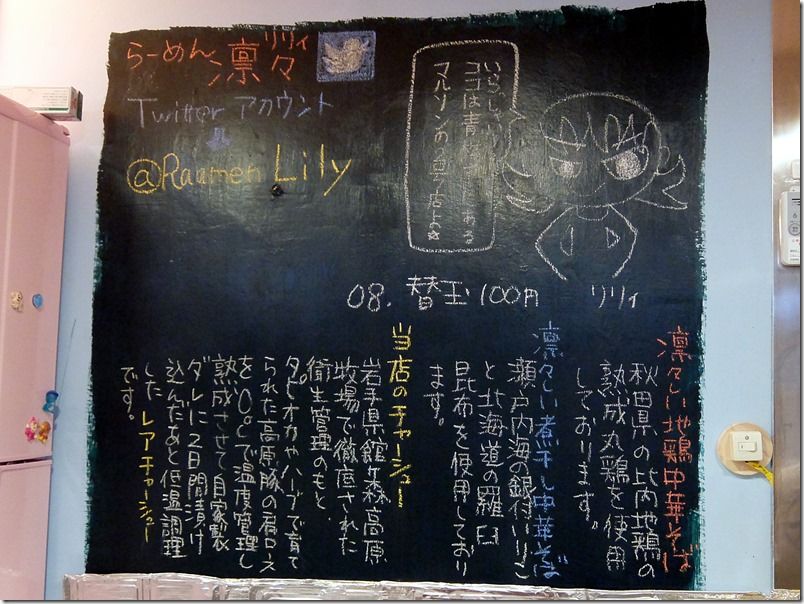 らーめん 凛々
リリィ
Twitter アカウント
@Raamen Lily
いらっしゃい
ココは青
ある
マルソンの
店よ☆
08. 替玉 100円
リリィ
凛々しい地鶏中華そば
秋田県の比内地鶏の
熟成丸鶏を使用
しております。
凛々しい煮干し中華そば
瀬戸内海の銀付いりこ
と北海道の羅臼
昆布を使用しており
ます。
当店のチャーシュー
岩手県館ヶ森高原
牧場で徹底された
衛生管理のもと、
タピオカやハーブで育て
られた高原豚の肩ロース
を0℃で温度管理し
熟成させて自家製
ダレに2日間漬け
込んだあと低温調理
した レアチャーシュー
です。